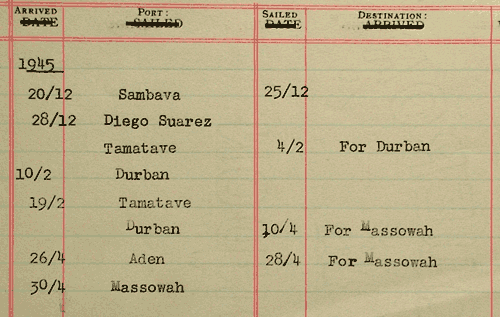 ARRIVED PORT: SAILED DESTINATION:
DATE SAILED DATE ARRIVED
1945
20/12 Sambava 25/12
28/12 Diego Suarez
Tamatave 4/2 For Durban
10/2 Durban
19/2 Tamatave
Durban 10/4 For Massowah
26/4 Aden 28/4 For Massowah
30/4 Massowah